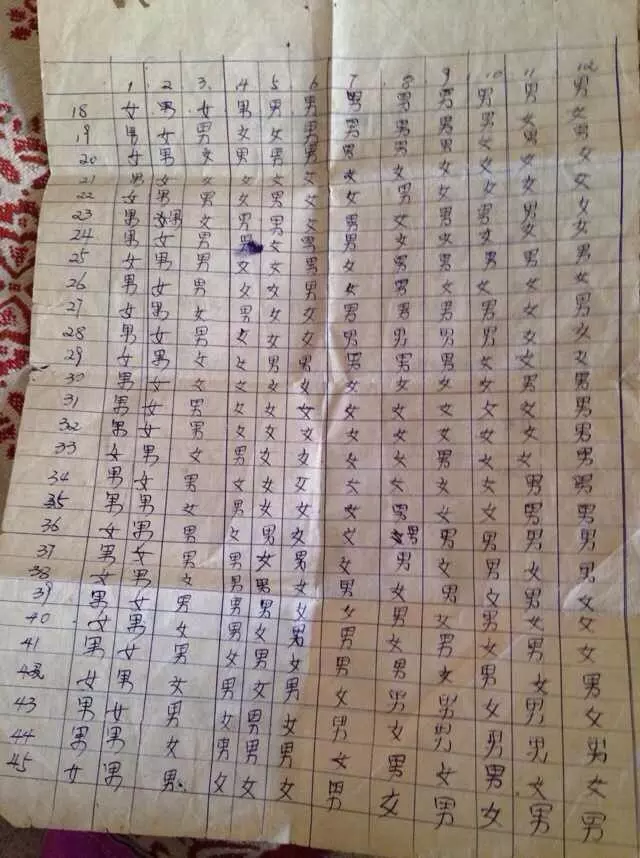 1 2 3 4 5 6 7 8 9 10 11 12
18 女 男 女 男 男 男 男 男 男 男 男 男
19 男 女 男 女 女 男 男 男 男 男 女 女
20 女 男 女 男 男 男 男 男 男 女 男 男
21 男 女 女 女 女 女 女 女 女 女 女 女
22 女 男 女 男 男 女 女 男 女 女 女 女
23 男 女男 女 男 男 女 男 女 男 男 男 女
24 男 女 男 男 女 男 男 女 女 女 女 女
25 女 男 男 女 女 男 女 男 男 男 男 男
26 男 女 男 女 女 男 女 男 女 女 女 女
27 女 男 女 男 女 女 男 男 男 男 女 男
28 男 女 男 女 女 女 男 男 男 男 女 女
29 女 男 女 女 男 男 男 男 男 女 女 女
30 男 女 女 女 女 女 女 女 女 女 男 男
31 男 女 男 女 女 女 女 女 女 女 女 男
32 男 女 男 女 女 女 女 女 女 女 女 男
33 女 男 女 男 女 女 女 女 男 女 女 男
34 男 女 男 女 女 女 女 女 女 女 男 男
35 男 男 女 男 女 女 女 男 女 女 男 男
36 女 男 男 女 男 女 女 女男 男 男 男 男
37 男 女 男 男 女 男 女 男 女 男 女 男
38 女 男 女 男 男 女 男 女 男 女 男 女
39 男 女 男 男 男 女 女 男 女 男 女 女
40 女 男 女 男 女 男 男 女 男 女 男 女
41 男 女 男 女 男 女 男 男 女 男 女 男
女 男 女 男 女 男 女 男 男 女 男 女
43 男 女 男 女 男 女 男 女 男 男 男 男
44 男 男 女 男 男 男 女 男 女 男 女 女
45 女 男 男 女 女 女 男 女 男 女 男 男